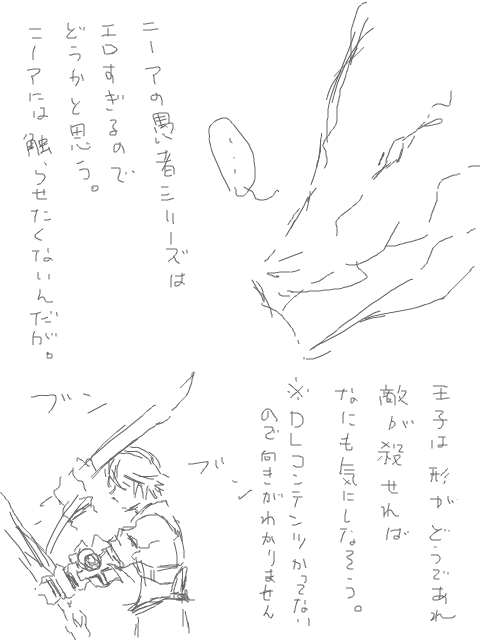 ニーアの愚者シリーズは
エロすぎるので
どうかと思う。
ニーアには触らせたくないんだが。
…
王子は形がどうであれ
敵が殺せれば
なにも気にしなそう。
※DLコンテンツかってない
ので向きがわかりません
ブン
ブン